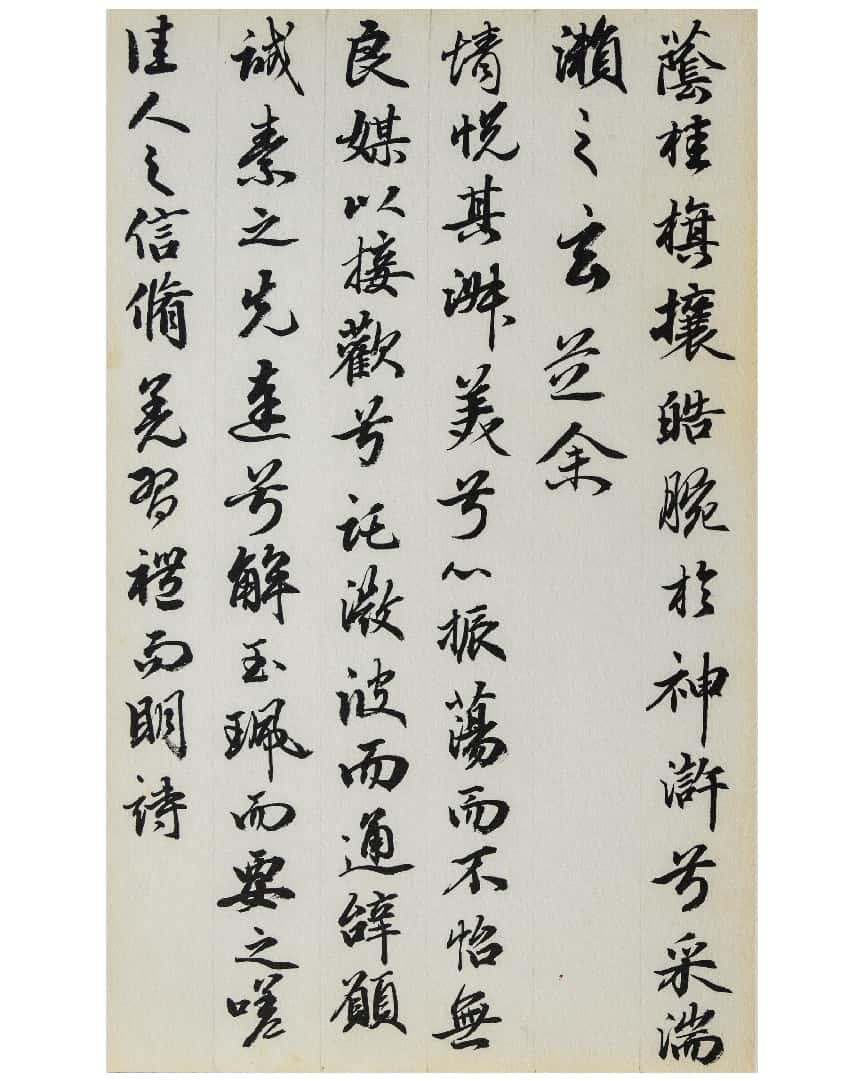 蔭桂旗攘皓腕於神滸兮采湍
瀨之玄芝余
情悅其淑美兮心振蕩而不怡無
良媒以接歡兮託微波而通辭願
誠素之先達兮解玉珮而要之嗟
佳人之信脩羌習禮而明詩